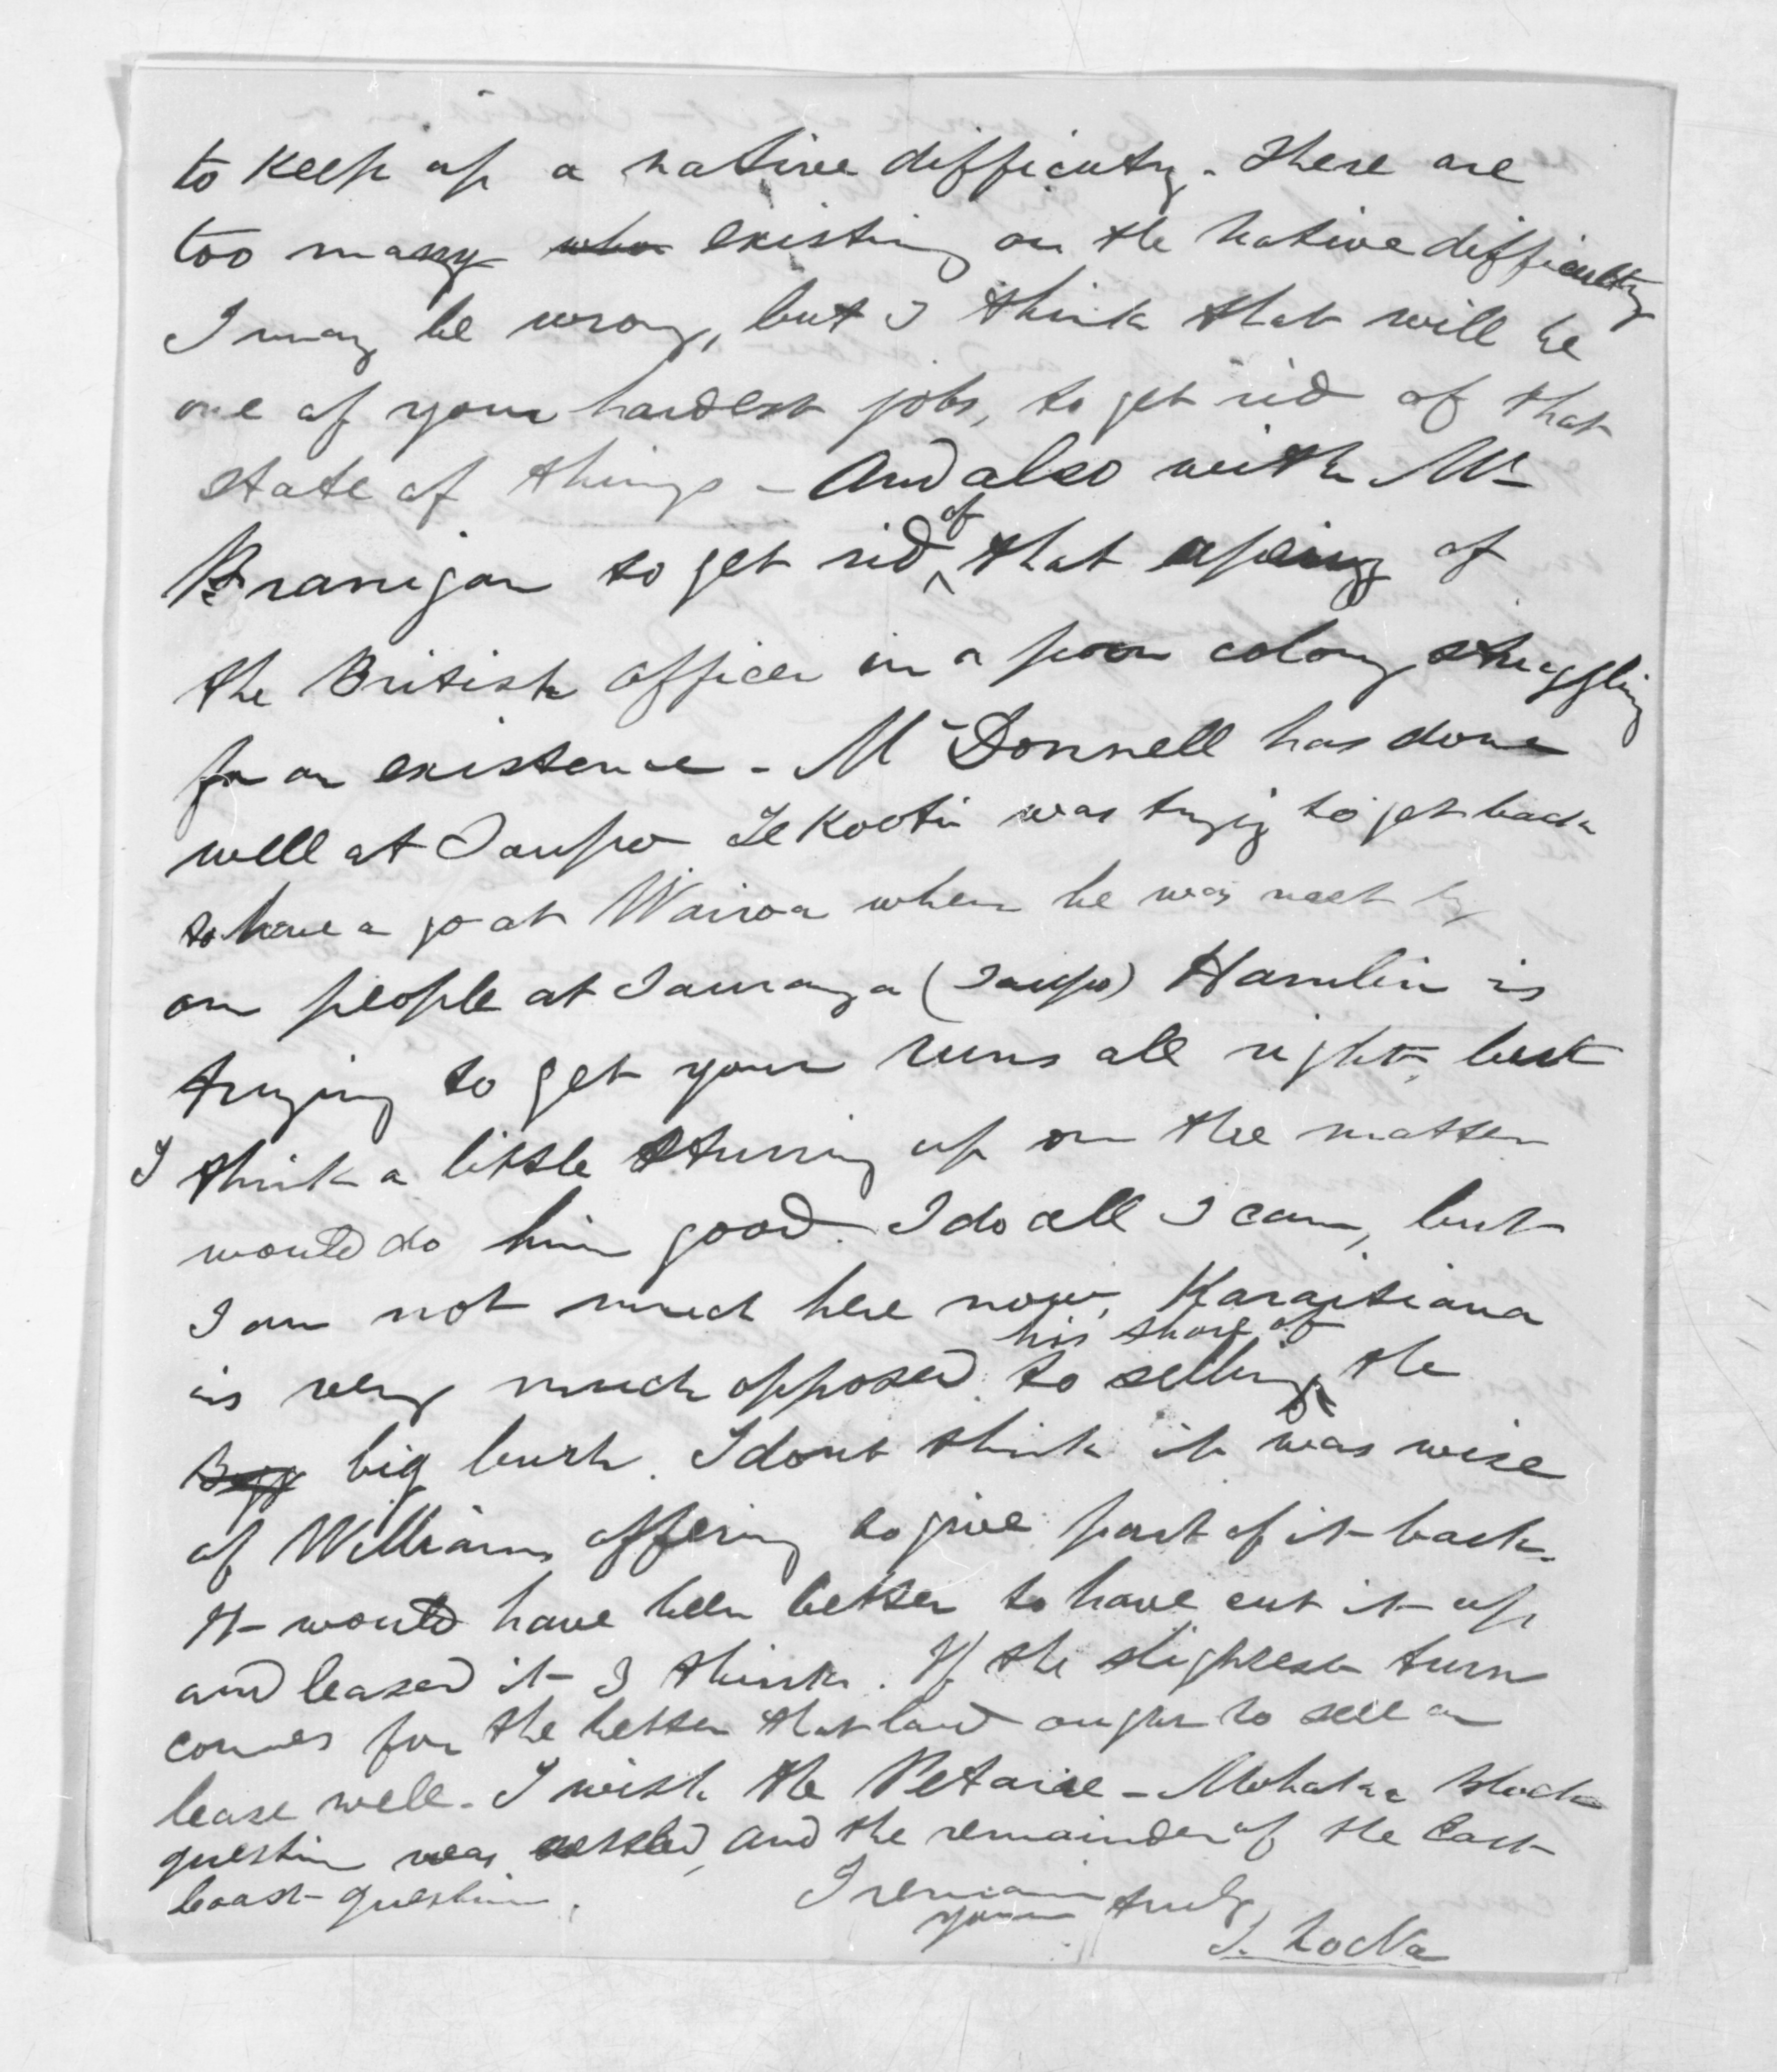 to keep up a native difficulty. There are
too many who existing on the native difficulty
I may be wrong, but I think that will be
one of your hardest jobs, to get rid of that
state of things - And also with Mr
Branigan to get rid of that apeing of
the British officer in a poor colony struggling
for an existence - McDonnell has done
well at Taupo Te Kooti was trying to get back
to have a go at Wairoa when he was meet by
our people at Tauranga (Taupo) Hamlin is
trying to get your runs all right, but
I think a little sturring up on the matter
would do him good. I do all I can, but
I am not much here now, Karaitiana
is very much opposed to selling his share of the
big bush. I dont think it was wise
of Williams offering to give part of it back.
It would have been better to have cut it up
and leased it I think. If the slightest turn
comes for the better that land ought to sell or
lease well. I wish the Petaice - Mohaka block
question was settled, and the remainder of the East
Coast question.
I remain
yours truly
S. Locke